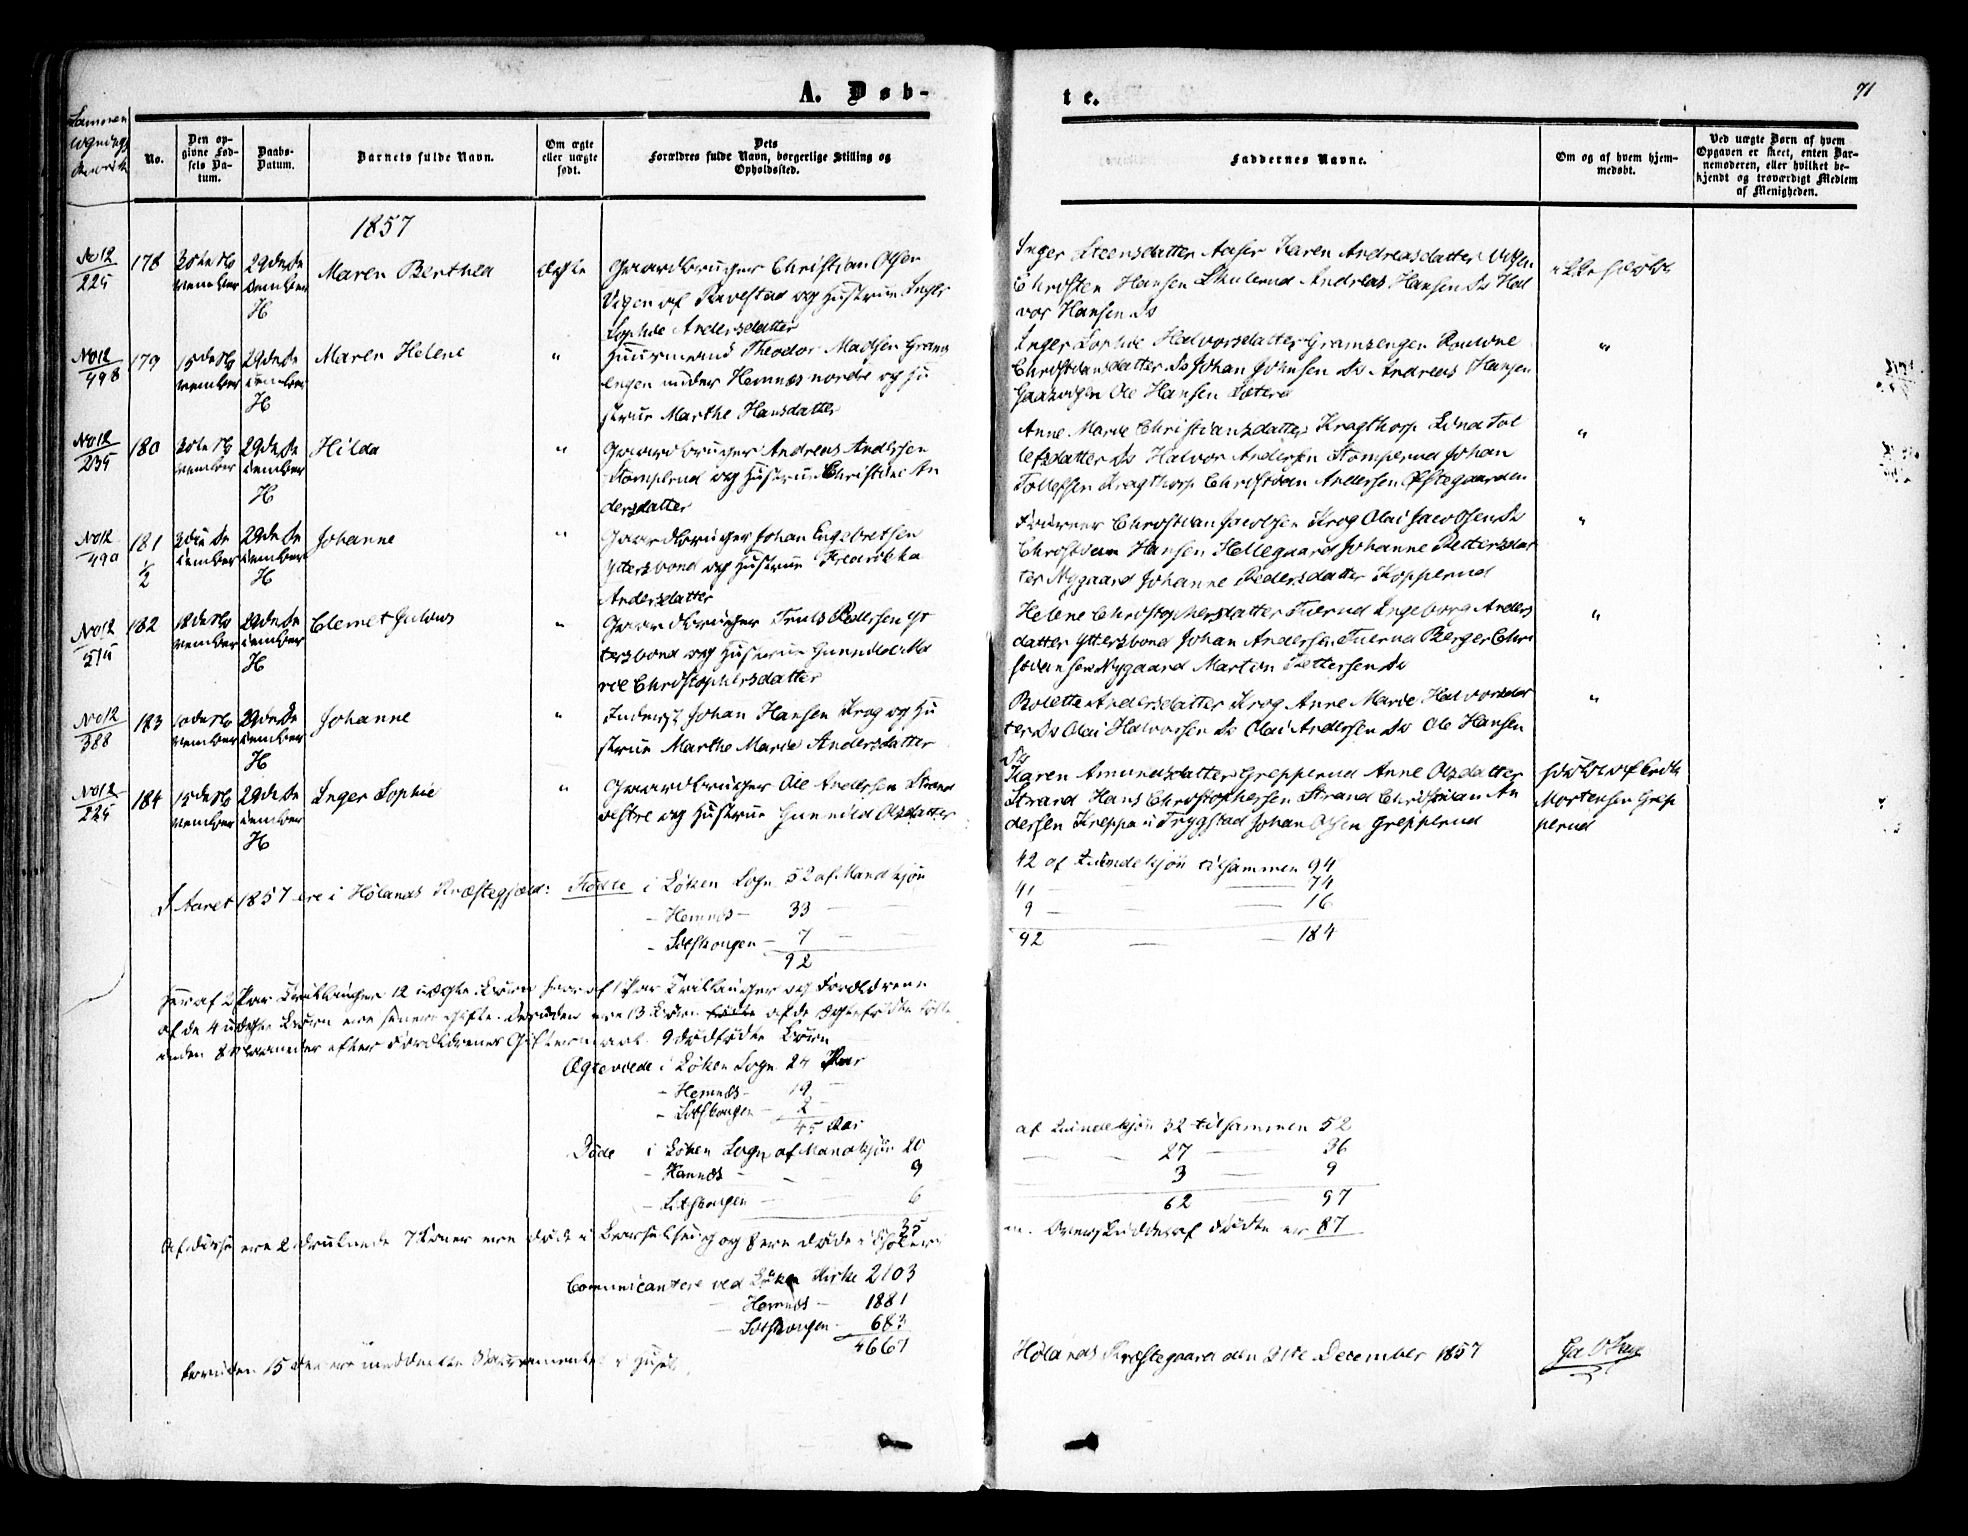 A. Døb-
te.
71
Sammen
No.
Den op-
givne Fød-
sels Da-
tum.
Daabs-
Datum.
Barnets fulde Navn.
Om ægte
eller uægte
født.
Dets
Forældres fulde Navn, borgerlige Stilling og
Opholdssted.
Faddernes Navne.
Om og af hvem hjem-
medøbt.
Ved uægte Børn af hvem
Opgaven er skeet, enten Bar-
nemoderen, eller hvilket be-
kjendt og troværdigt Medlem
af Menigheden.
1857
No 12
225
178
vember
29de De
cember
H
Maren Berthea
ægte
Gaardbruger Christian Olsen
og Hustrue Inger
Sophie Andersdatter
Inger Steensdatter Karen Andreasdatter
Christen Hansen Skulerud Andreas Hansen Ds Hal
vor Hansen Ds
No 12
498
179
15de No
vember
29de De
cember
H
Maren Helene
"
Huusmand Theodor Madsen Gram
engen under Hemnes nordre og Hu
strue Marthe Hansdatter
Inger Sophie Halvorsdatter Gramsengen
Christiansdatter Ds Johan Johnsen Ds Andreas Hansen
Ole Hansen Sætere
"
No 12
235
180
vember
29de De
cember
H
Hilda
"
Gaardbruger Andreas Andersen
Stomperud og Hustrue Christine An
dersdatter
Anne Marie Christiansdatter Kragthorp Edna Tol
lefsdatter Ds Halvor Andersen Stomperud Johan
Tollefsen Kragthorp Christian Andersen Østegaarden
"
No 12
490
181
1/2
De
cember
29de De
cember
H
Johanne
"
Gaardbruger Johan Engebretsen
Yttersbond og Hustrue Fredrikka
Andersdatter
Christian Jacobsen Krog Olai Jacobsen Ds
Christian Hansen Hellegaard Johanne Pettersdat
ter Nygaard Johanne Pedersdatter Kopperud
"
No 12
515
182
18de No
vember
29de De
cember
H
Clemet Julius
"
Gaardbruger Truls Pedersen Yt
tersbond og Hustrue Gunnild Ma
rie Christophersdatter
Helene Christophersdatter Tuerud Ingeborg Anders
datter Yttersbond Johan Andersen Tuerud Berger Chri
stiansen Nygaard Martin Pettersen Ds
"
No 12
388
183
10de No
vember
29de De
cember
H
Johanne
"
Inderst Johan Hansen Krog og Hu
strue Marthe Marie Andersdatter
Bolette Andersdatter Krog Anne Marie Halvorsdat
ter Ds Olai Halvorsen Ds Olai Andersen Ds Ole Hansen
Ds
"
No 12
225
184
15de No
vember
29de De
cember
H
Inger Sophie
"
Gaardbruger Ole Andersen Strand
vestre og Hustrue Gunnild Olsdatter
Karen Amundsdatter Grepperud Anne Olsdatter
Strand Hans Christophersen Strand Christian An
dersen Kreppa i Trygstad Johan Olsen Grepperud
Mortensen Grep
perud
I Aaret 1857 ere i Hølands Præstegjeld: Fødte i Løken Sogn 52 af Mandkjøn
42 af Quindekjøn tilsammen 94
- Hemnes - 33
41 74
- Sætskougen - 7
9 16
92
92 184
Heraf 2 Par Tvillinger 12 uægte Børn hvoraf 1 Par Tvillinger og Forældrene
af de 4 uægte Børn ere senere gifte. Desuden ere 13 Børn fødte af de ægtefødte fødte
inden 8 Maaneder efter Forældrenes Giftermaal. 9 dødfødte Børn
Ægteviede i Løken Sogn 24 Par
- Hemnes - 19
- Sætskougen - 2
45 Par
Døde i Løken Sogn af Mandkjøn 20
af Quindekjøn 32 tilsammen 52
- Hemnes - 9
27 36
- Sætskougen - 6
3 9
35
62 97
Af disse ere 2 druknede 7 Koner ere døde i Barselseng og 8 ere døde i
Overskuddet af Fødte er 87
Communicantere ved Løken Kirke 2103
- Hemnes - 1881
- Sætskougen - 683
4667
foruden 15 der ere meddeelte Sacramentet i Huset.
Hølands Præstegaard den 31te December 1857